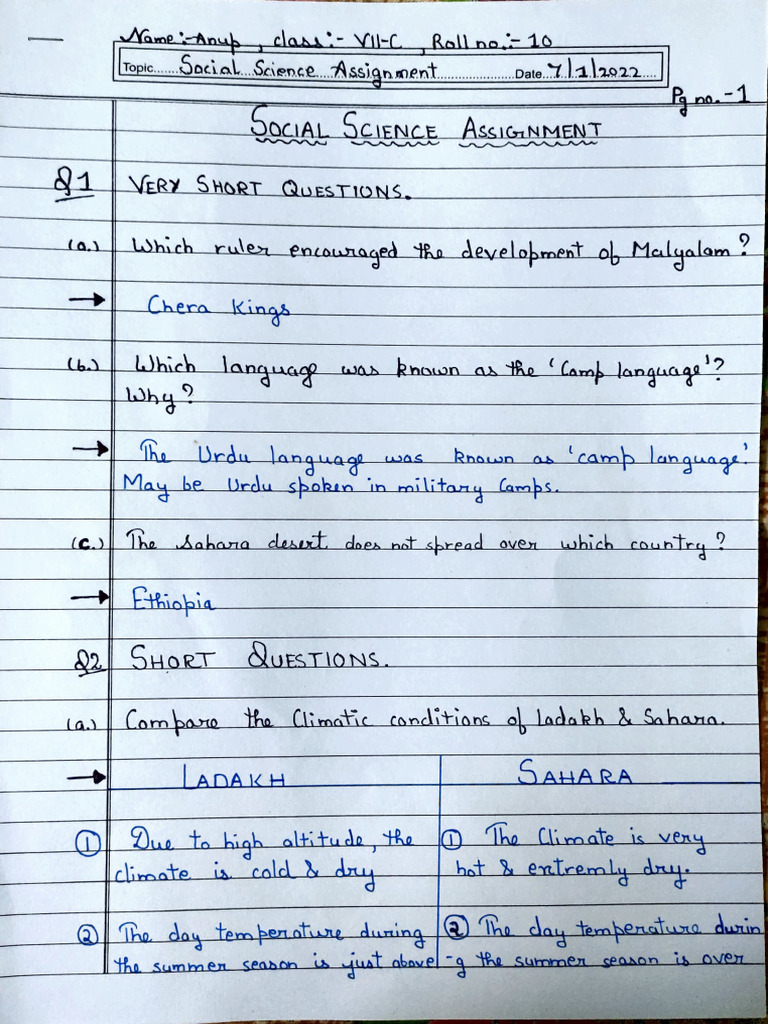 Name:- Anup , class:- VII-C , Roll no.:- 10
Topic.......Social Science Assignment.......Date..7/1/2022....
Pg no.-1
SOCIAL SCIENCE ASSIGNMENT
Q1 VERY SHORT QUESTIONS.
(a.) Which ruler encouraged the development of Malyalam?
→ Chera Kings
(b.) Which language was known as the 'Camp language'?
Why?
→ The Urdu language was known as 'camp language.'
May be Urdu spoken in military Camps.
(c.) The Sahara desert does not spread over which country?
→ Ethiopia
Q2 SHORT QUESTIONS.
(a.) Compare the Climatic conditions of Ladakh & Sahara.
→ LADAKH SAHARA
① Due to high altitude, the ① The Climate is very
climate is cold & dry hot & extremly dry.
② The day temperature during ② The day temperature durin
the summer season is just above -g the summer season is over